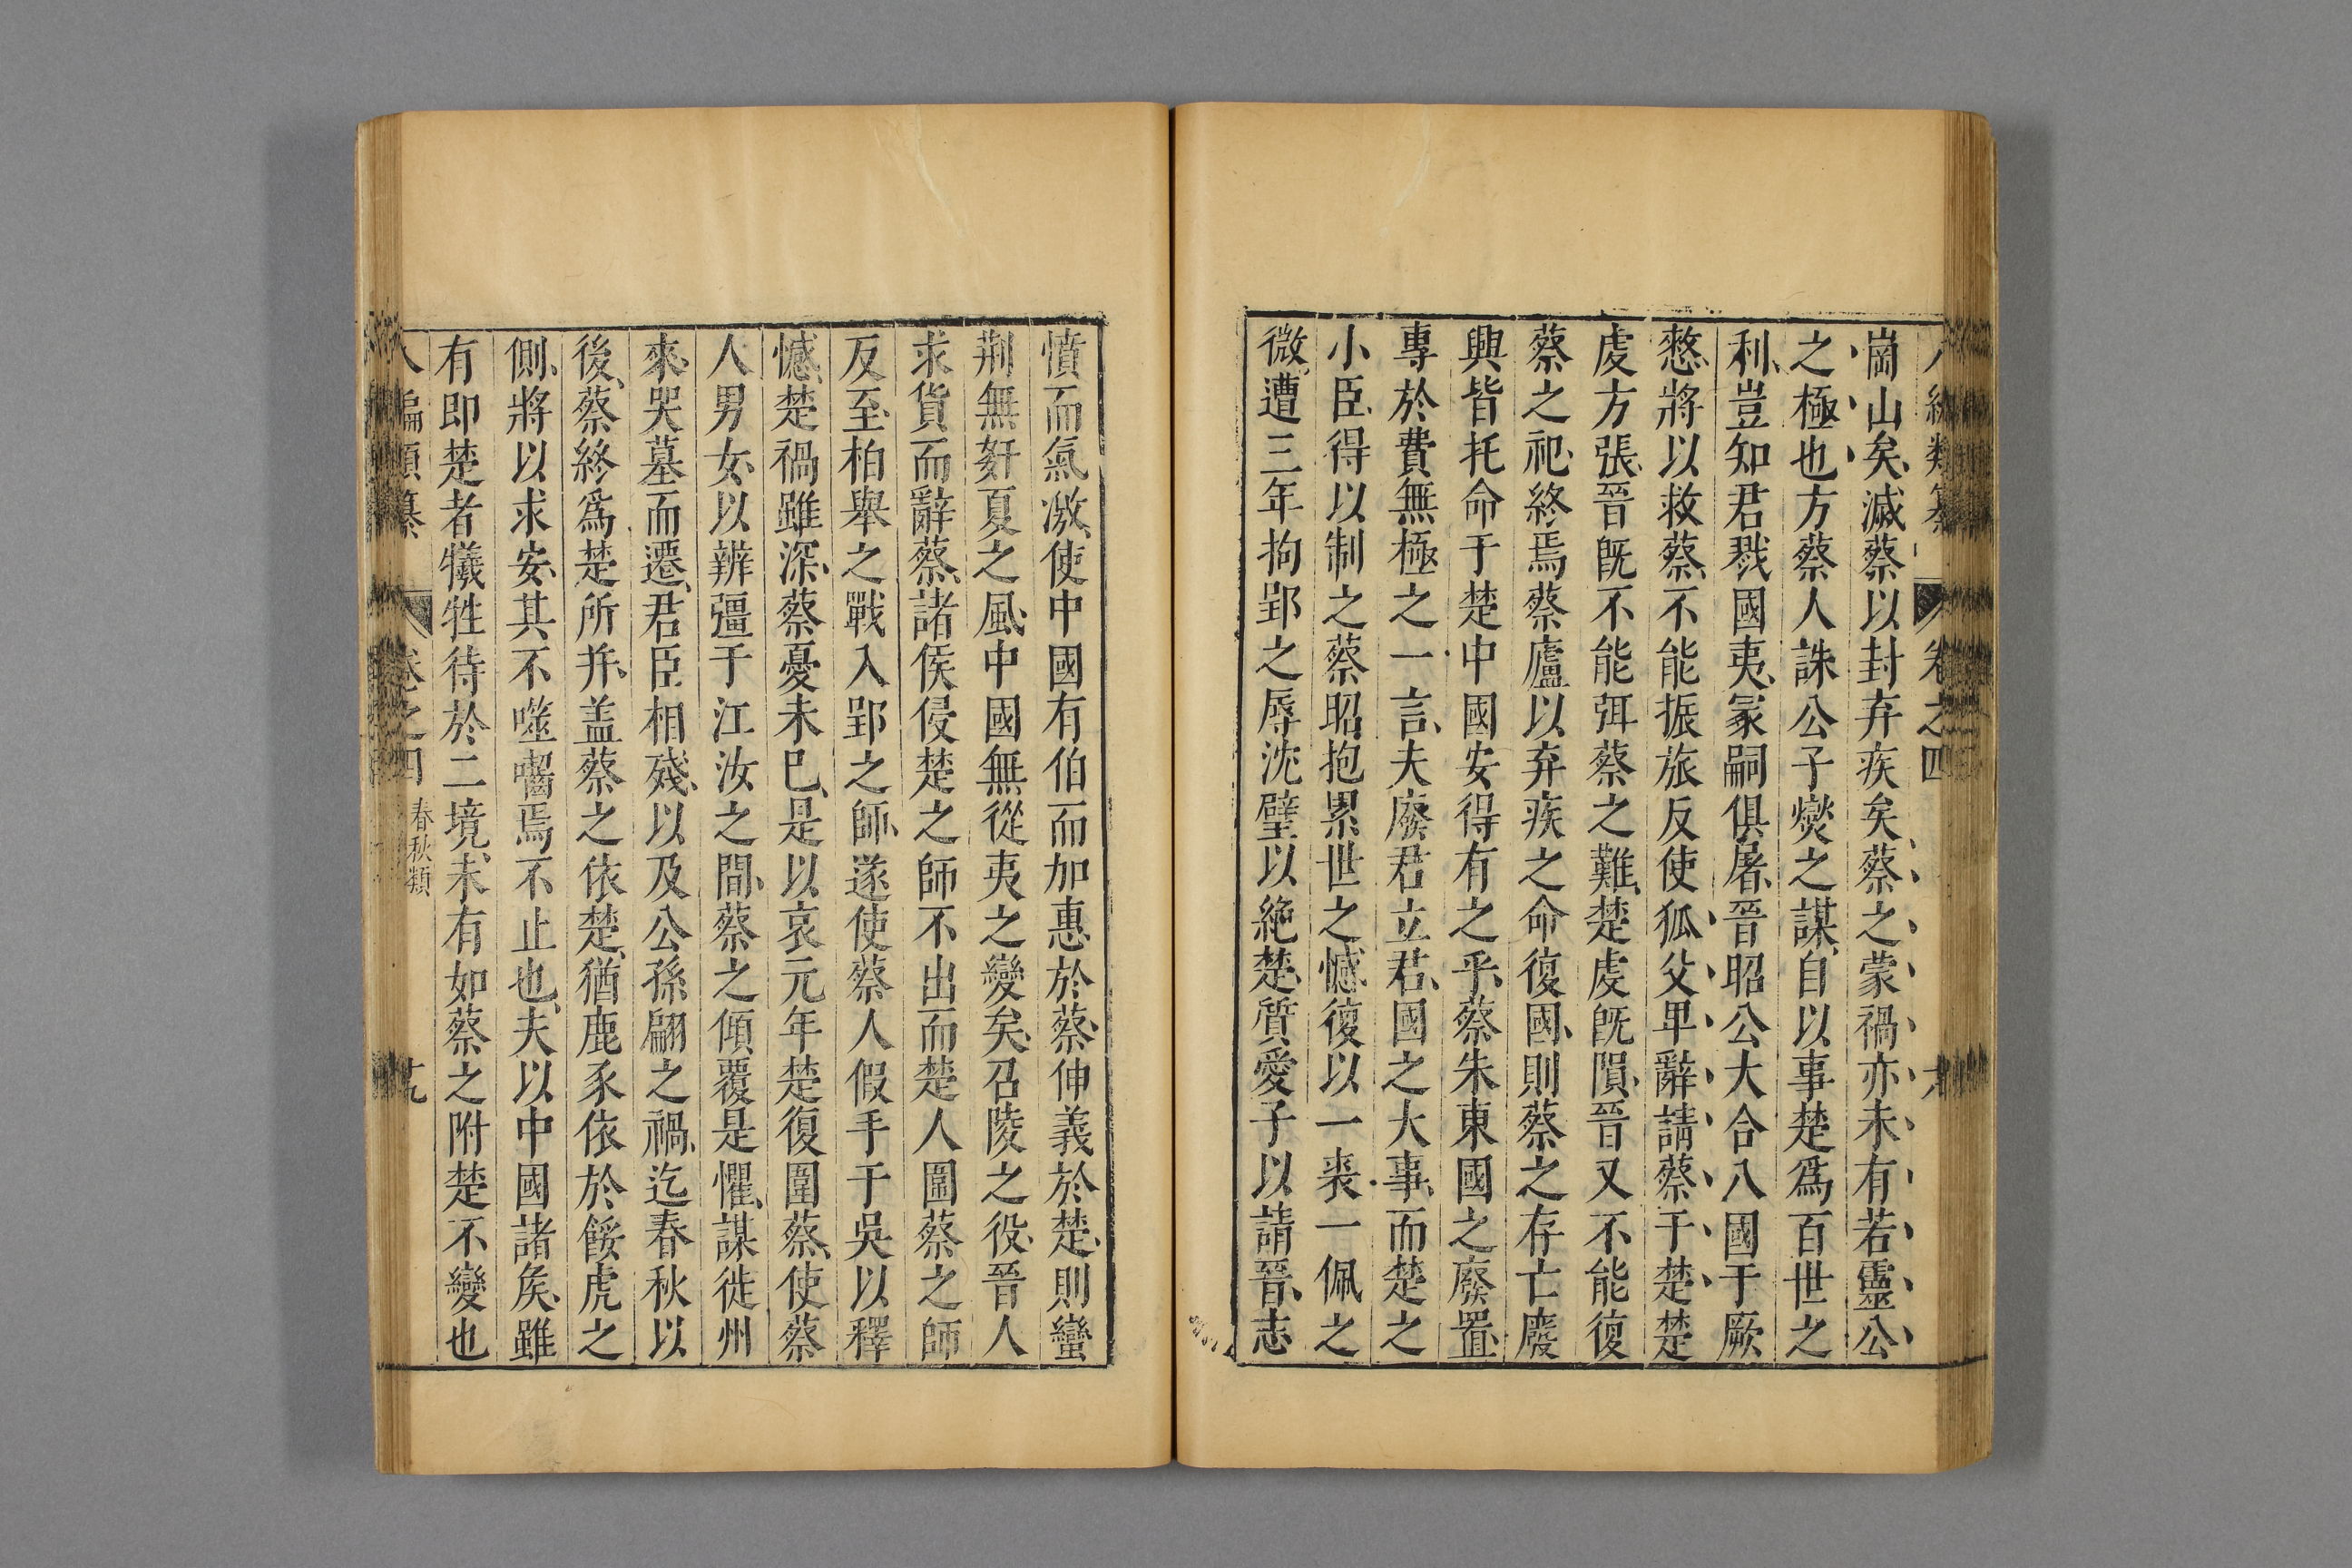 崗山矣滅蔡以封弃疾矣蔡之蒙禍亦未有若靈公
之極也方蔡人誅公子燮之謀自以事楚爲百世之
利豈知君戮國夷冡嗣俱屠晉昭公大合八國于厥
憗將以救蔡不能振旅反使狐父卑辭請蔡于楚楚
虔方張晉旣不能弭蔡之難楚虔旣隕晉又不能復
蔡之祀終焉蔡廬以弃疾之命復國則蔡之存亡廢
興皆托命于楚中國安得有之乎蔡朱東國之廢置
專於費無極之一言夫廢君立君國之大事而楚之
小臣得以制之蔡昭抱累世之憾復以一裘一佩之
微遭三年拘郢之辱沈璧以絶楚質愛子以請晉志
憤而氣激使中國有伯而加惠於蔡伸義於楚則蠻
荆無奸夏之風中國無從夷之變矣召陵之役晉人
求貨而辭蔡諸侯侵楚之師不出而楚人圍蔡之師
反至柏舉之戰入郢之師遂使蔡人假手于吳以釋
憾楚禍雖深蔡憂未巳是以哀元年楚復圍蔡使蔡
人男女以辨彊于江汝之間蔡之傾覆是懼謀徙州
來哭墓而遷君臣相殘以及公孫翩之禍迄春秋以
後蔡終爲楚所并盖蔡之依楚猶鹿豕依於餒虎之
側將以求安其不噬齧焉不止也夫以中國諸矦雖
有即楚者犧牲待於二境未有如蔡之附楚不變也
卷之四 春秋類